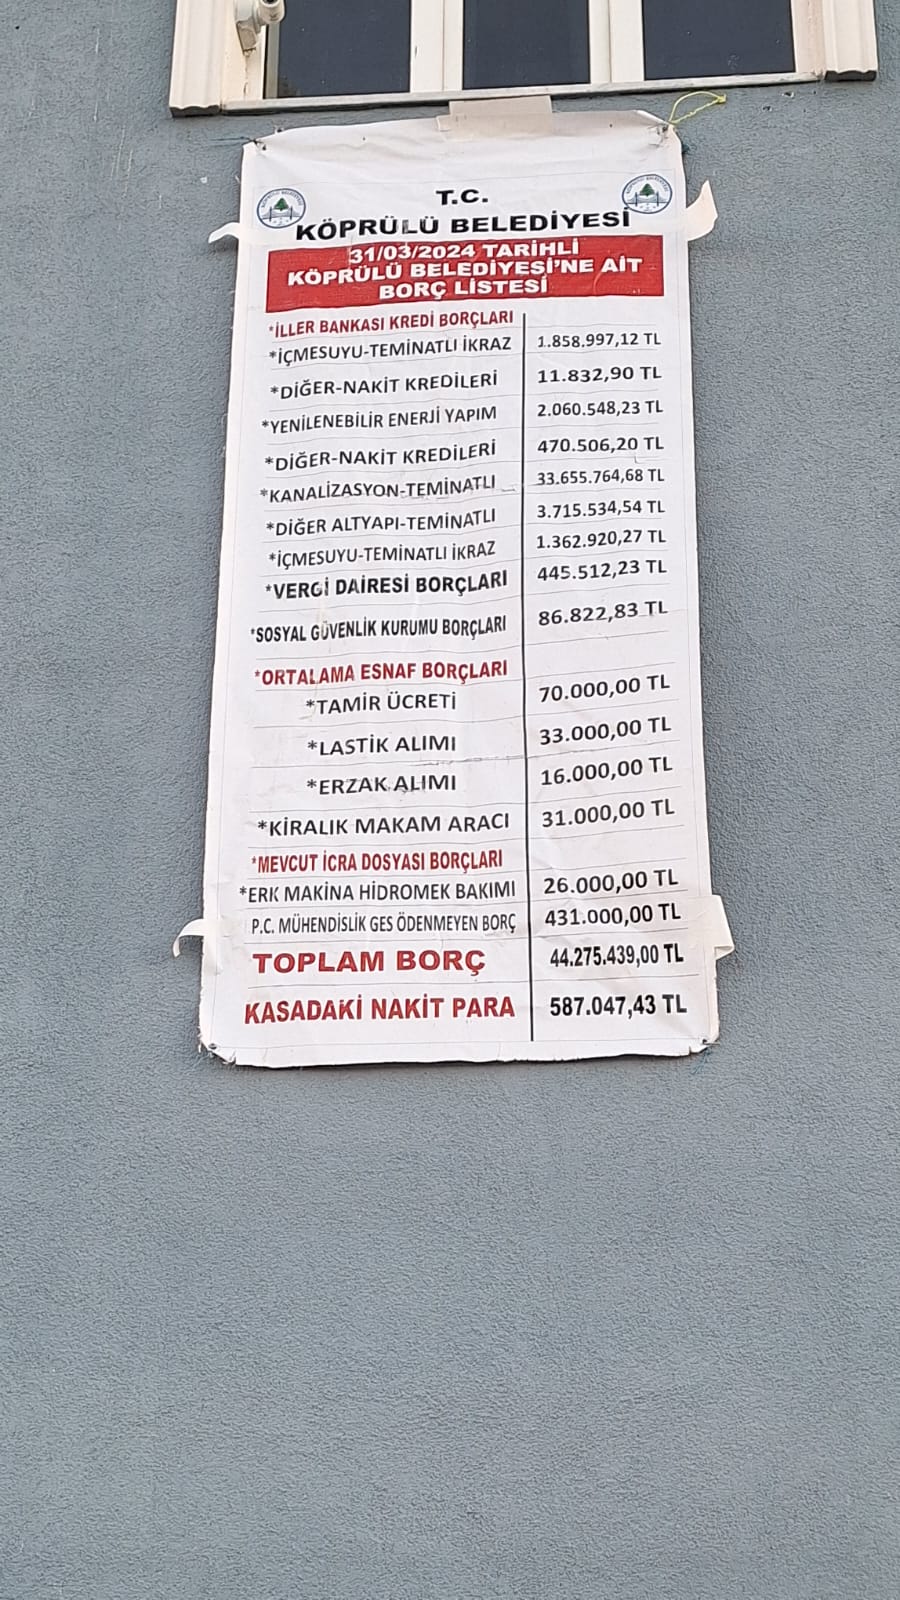 T.C.
KÖPRÜLÜ BELEDİYESİ
31/03/2024 TARİHLİ
KÖPRÜLÜ BELEDİYESİ'NE AİT
BORÇ LİSTESİ
*İLLER BANKASI KREDİ BORÇLARI
*İÇMESUYU-TEMİNATLI İKRAZ 1.858.997,12 TL
*DİĞER-NAKİT KREDİLERİ 11.832,90 TL
*YENİLENEBİLİR ENERJİ YAPIM 2.060.548,23 TL
*DİĞER-NAKİT KREDİLERİ 470.506,20 TL
*KANALİZASYON-TEMİNATLI 33.655.764,68 TL
*DİĞER ALTYAPI-TEMİNATLI 3.715.534,54 TL
*İÇMESUYU-TEMİNATLI İKRAZ 1.362.920,27 TL
*VERGİ DAİRESİ BORÇLARI 445.512,23 TL
*SOSYAL GÜVENLİK KURUMU BORÇLARI 86.822,83 TL
*ORTALAMA ESNAF BORÇLARI
*TAMİR ÜCRETİ 70.000,00 TL
*LASTİK ALIMI 33.000,00 TL
*ERZAK ALIMI 16.000,00 TL
*KİRALIK MAKAM ARACI 31.000,00 TL
*MEVCUT İCRA DOSYASI BORÇLARI
*ERK MAKİNA HİDROMEK BAKIMI 26.000,00 TL
P.C. MÜHENDİSLİK GES ÖDENMEYEN BORÇ 431.000,00 TL
TOPLAM BORÇ 44.275.439,00 TL
KASADAKİ NAKİT PARA 587.047,43 TL